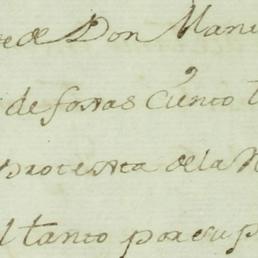 de Don Manu
de foxas Ciento t
protexta de la N
l tanto por su p